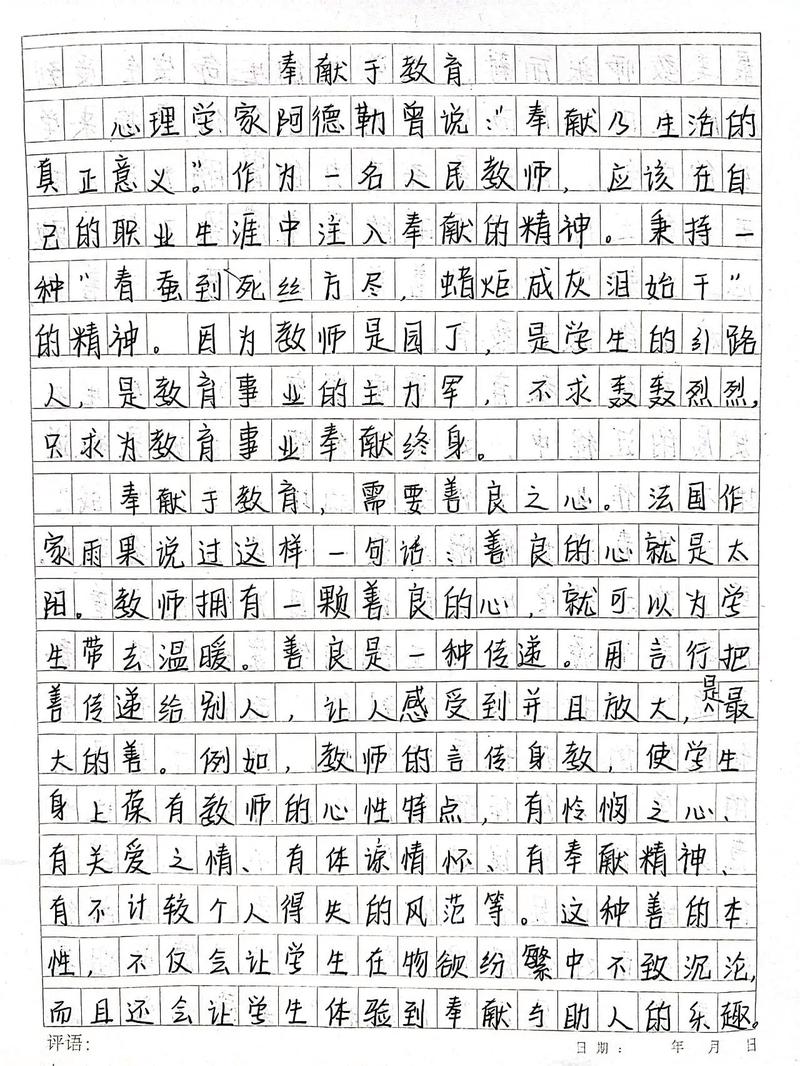 奉献于教育
心理学家阿德勒曾说:"奉献乃生活的
真正意义"。作为一名人民教师，应该在自
己的职业生涯中注入奉献的精神。秉持一
种"春蚕到死丝方尽，蜡炬成灰泪始干"
的精神。因为教师是园丁，是学生的引路
人，是教育事业的主力军，不求轰轰烈烈，
只求为教育事业奉献终身。
奉献于教育，需要善良之心。法国作
家雨果说过这样一句话：善良的心就是太
阳。教师拥有一颗善良的心，就可以为学
生带去温暖。善良是一种传递。用言行把
善传递给别人，让人感受到并且放大，是最
大的善。例如，教师的言传身教，使学生
身上葆有教师的心性特点，有怜悯之心、
有关爱之情、有体谅情怀、有奉献精神、
有不计较个人得失的风范等。这种善的本
性，不仅会让学生在物欲纷繁中不致沉沦，
而且还会让学生体验到奉献与助人的乐趣。
评语: 日期： 年 月 日